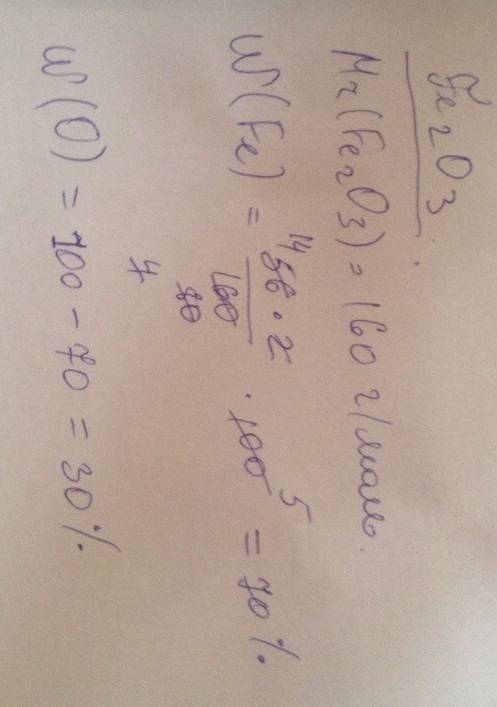 Fe₂O₃
Mr(Fe₂O₃) = 160 г/моль.
W(Fe) = 14 56 · 2 / 160 80 4 · 100 5 = 70%.
W(O) = 100 - 70 = 30%